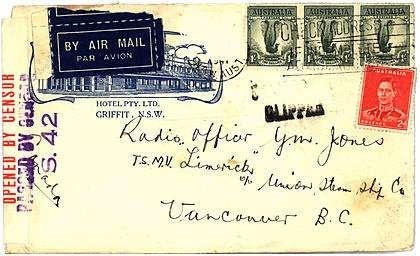 BY AIR MAIL
PAR AVION
AUSTRALIA
AUSTRALIA
AUSTRALIA
HOTEL PTY. LTD.
GRIFFIT , N.S.W.
CLIPPER
AUSTRALIA
OPENED BY CENSOR
PASSED BY CENSOR
S. 42
Radio Officer G.M. Jones
T.S.M.V. "Limerick"
c/o Union Steam Ship Co
Vancouver B.C.